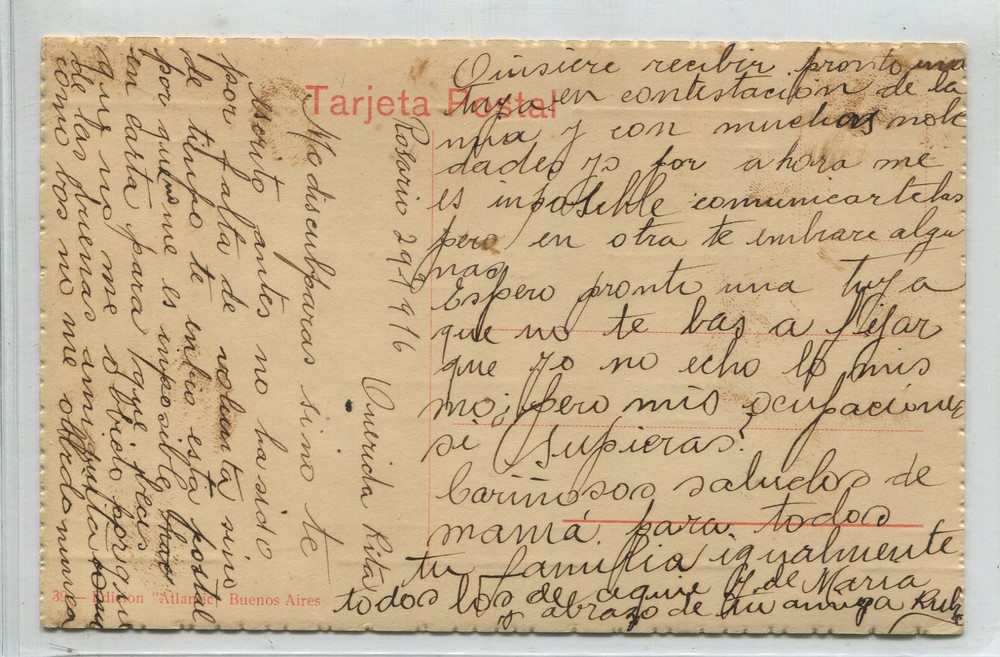 Tarjeta Postal
Rosario 29/1/916
Querida Rita
Me disculparas si no te
escrito antes no ha sido
por falta de voluntá sino
de tiempo te enbio esta postal
por que me es inposible
en carta para que veas
que no me olbido porque
de las buenas amiguitas
como bos no me olbido nunca
Quisiere recibir pronto una
tuya en contestacion de la
mia y con muchas nobe
dades yo por ahora me
es inposible comunicartelas
pero en otra te embrare algu
nas
Espero pronto una tuya
que no te bas a fijar
que yo no echo lo mis
mo, pero mis ocupaciones
si supieras?
Cariñosos saludos de
mamá para todos
tu familia igualmente
todos los de aqui y de Maria
y abrazo de tu amiga
39 — Edicion "Atlantic" Buenos Aires